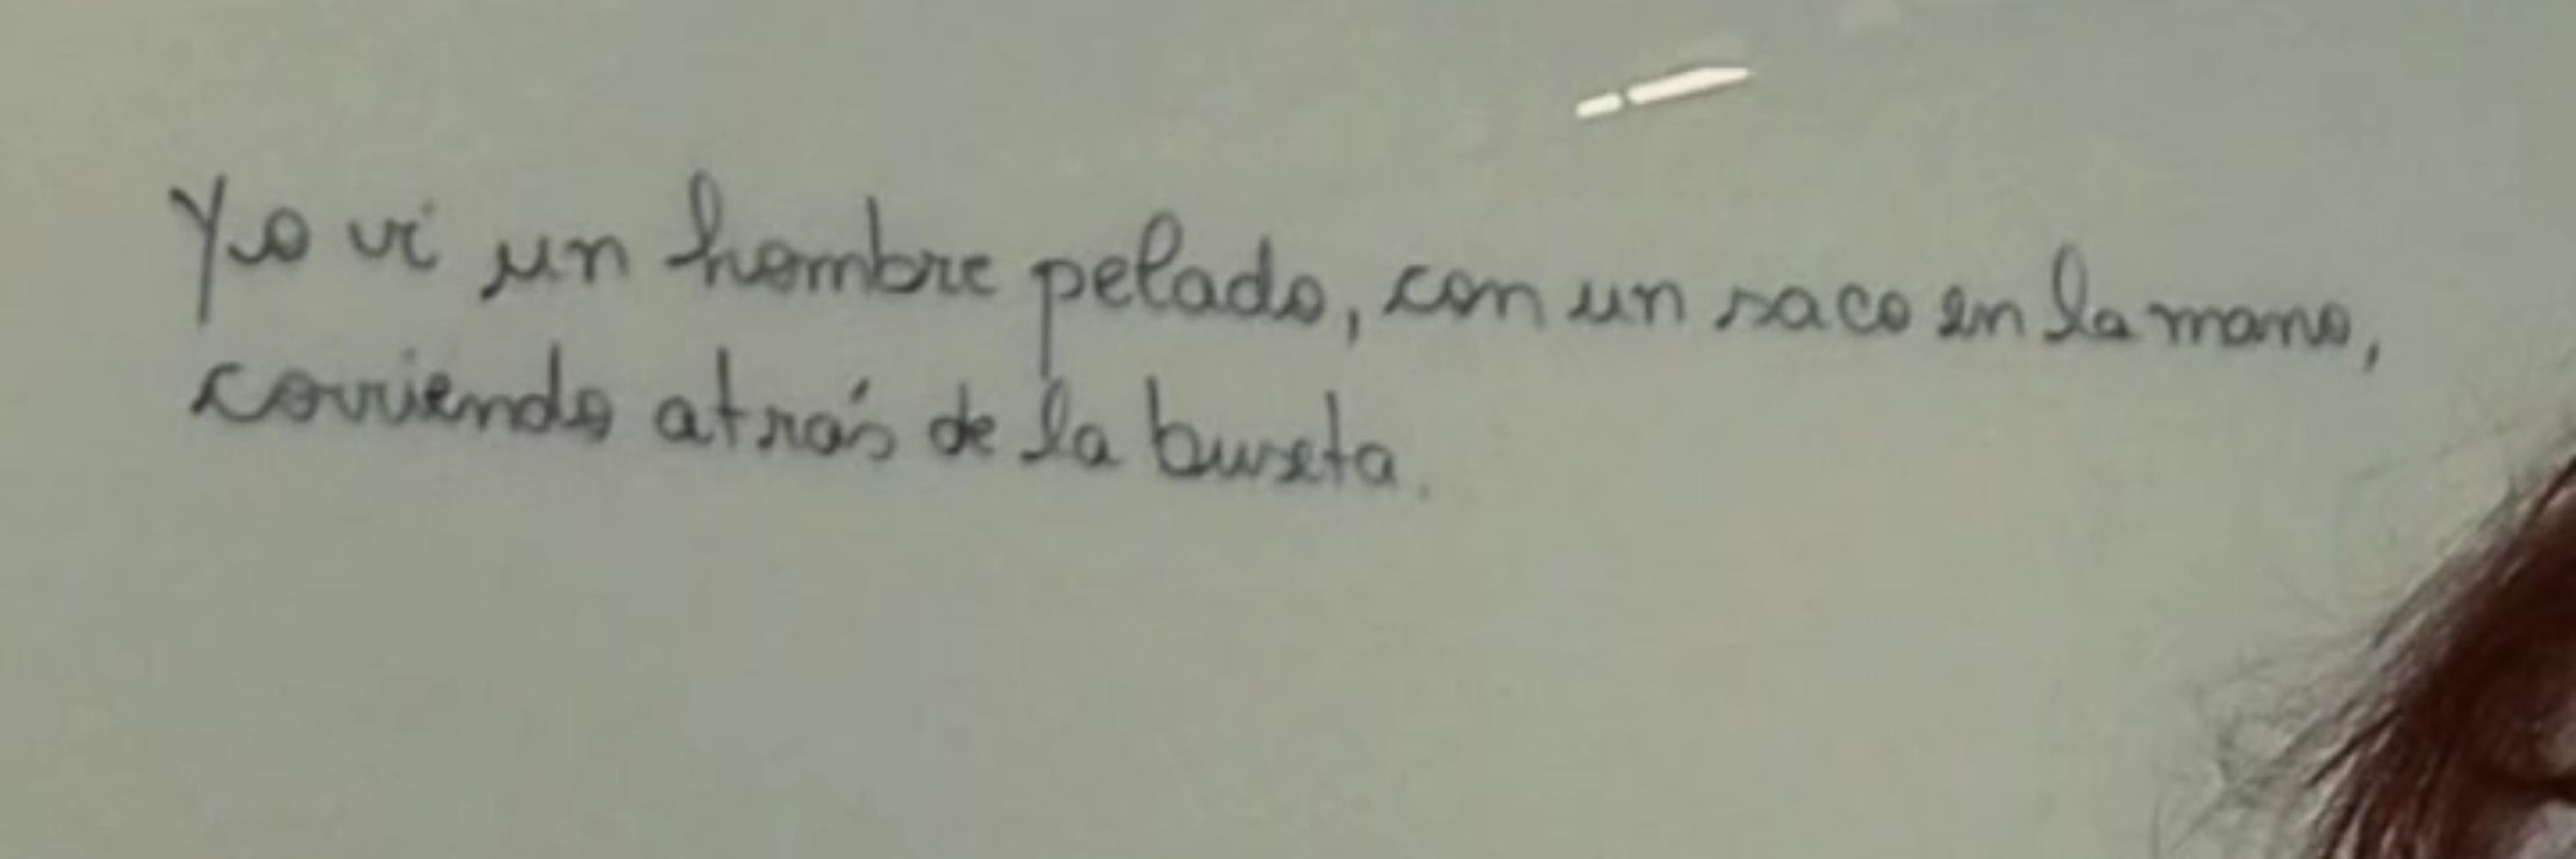 Yo vi un hombre pelado, con un saco en la mano,
corriendo atrás de la buseta.